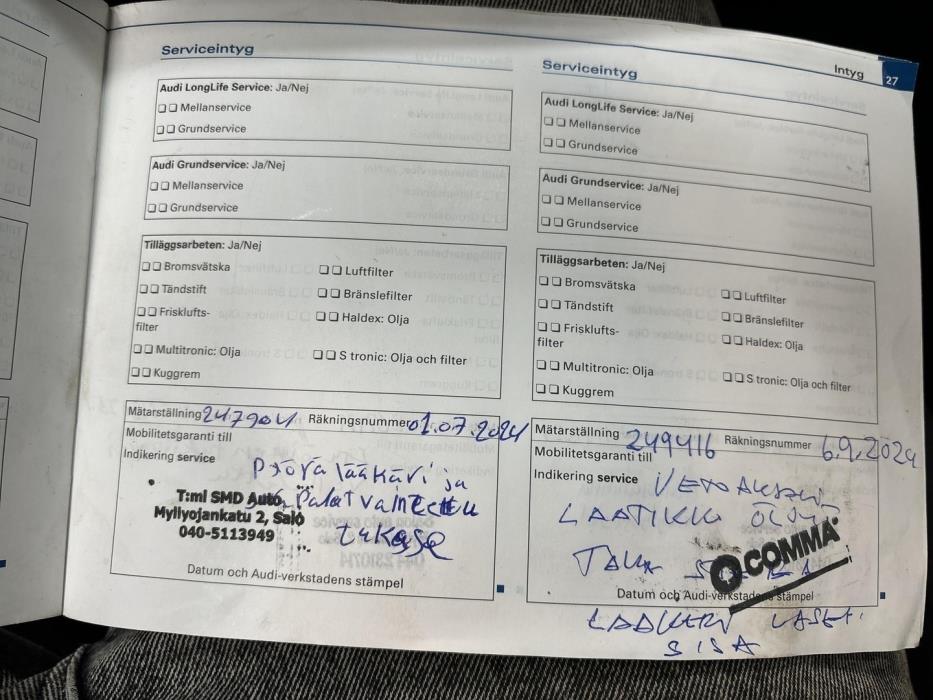 Serviceintyg
Audi LongLife Service: Ja/Nej
Mellanservice
Grundservice
Audi Grundservice: Ja/Nej
Mellanservice
Grundservice
Tilläggsarbeten: Ja/Nej
Bromsvätska
Luftfilter
Tändstift
Bränslefilter
Frisklufts-
filter
Haldex: Olja
Multitronic: Olja
S tronic: Olja och filter
Kuggrem
Mätarställning 247904 Räkningsnummer 01.07.2024
Mobilitetsgaranti till
Indikering service
ja
Palat
T:ml SMD Auto,
Myllyojankatu 2, Salo
040-5113949
Datum och Audi-verkstadens stämpel
Intyg 27
Serviceintyg
Audi LongLife Service: Ja/Nej
Mellanservice
Grundservice
Audi Grundservice: Ja/Nej
Mellanservice
Grundservice
Tilläggsarbeten: Ja/Nej
Bromsvätska
Luftfilter
Tändstift
Bränslefilter
Frisklufts-
filter
Haldex: Olja
Multitronic: Olja
S tronic: Olja och filter
Kuggrem
Mätarställning 249416 Räkningsnummer 6.9.2024
Mobilitetsgaranti till
Indikering service
LAATIKKO
TAKA
COMMA
Datum och Audi-verkstadens stämpel
LASET
SISA